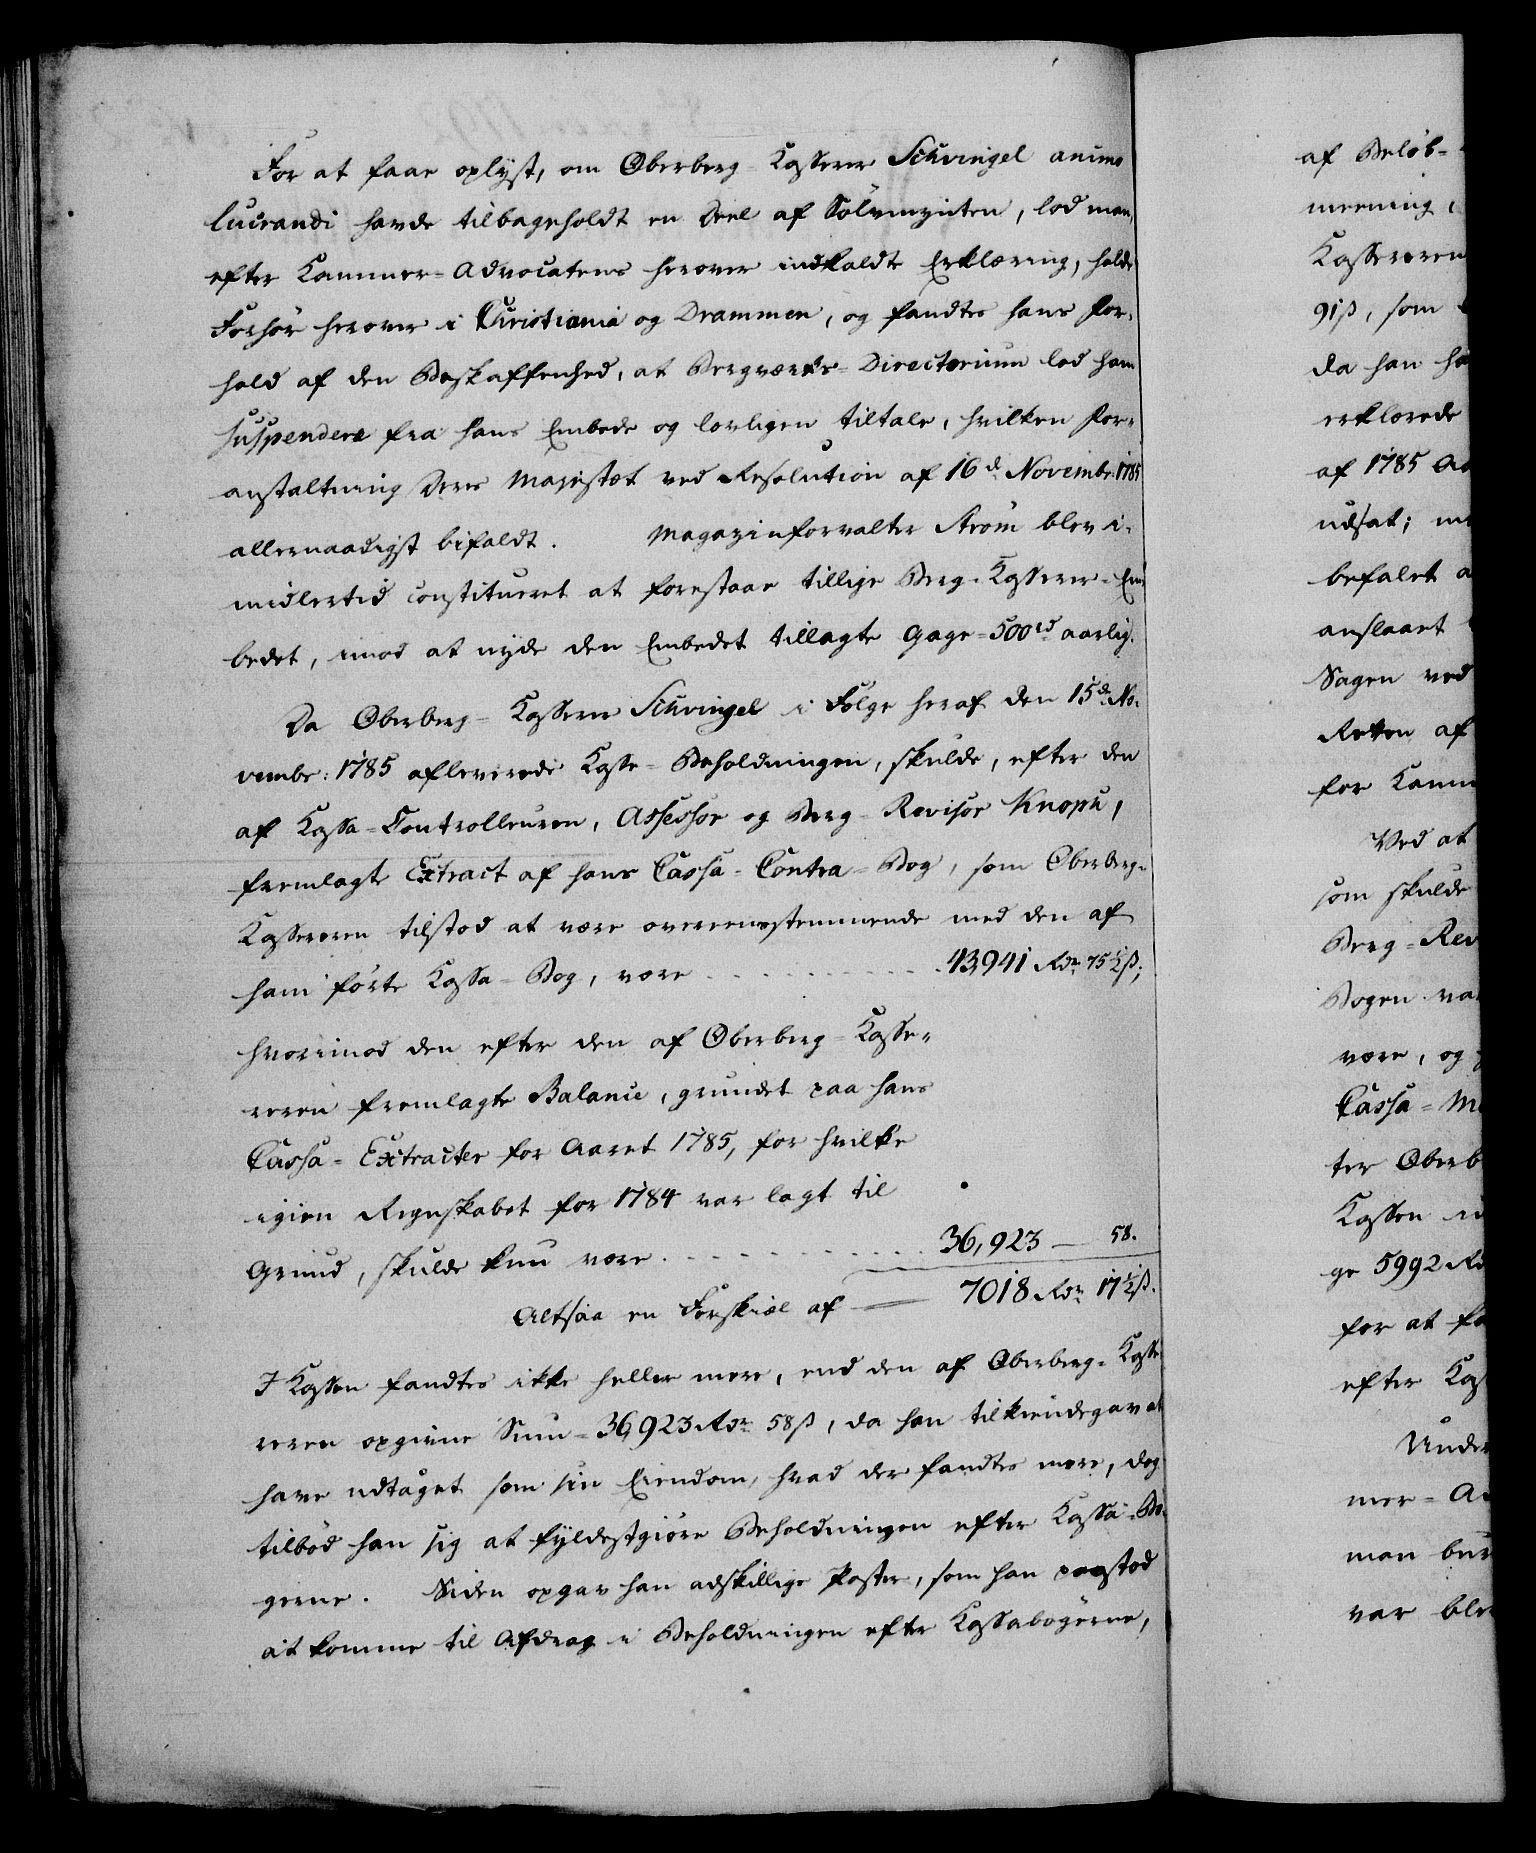 For at faae oplyst, om Oberberg-Casserer Schvingel animo
lucrandi havde tilbageholdt en Deel af Sølvmynten, lod man,
efter Kammer-Advocatens herover indkaldte Erklæring, holde
Forhør herover i Christiania og Drammen, og fandtes hans For-
hold af den Beskaffenhed, at Bergværks-Directorium lod ham
suspendere fra hans Embede og lovligen tiltale, hvilken For-
anstaltning Deres Majestæt ved Resolution af 16de Novembr. 1785
allernaadigst bifaldt. Magazinforvalter Strøm blev i-
midlertid constitueret at forestaae tillige Berg-Casserer-Em
bedet, imod at nyde den Embedet tillagte Gage-500 rd aarlig.
Da Oberberg-Kasserer Schvingel i Følge heraf den 15de No-
vembr: 1785 afleverede Kasse-Beholdningen, skulde, efter den
af Kassa-Controlleuren, Assessor og Berg-Revisor Knoph,
fremlagte Extract af hans Cassa-Contra-Bog, som Oberberg-
Kassereren tilstod at være overeensstemmende med den af
ham førte Kassa-Bog, være . . . . . . . . 43,941 Rdr 75½ ß;
hvorimod den efter den af Oberberg-Kasse-
reren fremlagte Balance, grundet paa hans
Cassa-Extracter for Aaret 1785, for hvilke
igien Regnskabet for 1784 var lagt til
Grund, skulde kun være . . . . . . . . . 36,923 — 58.
Altsaa en Forskiæl af — 7018 Rdr 17½ ß.
I Kassen fandtes ikke heller mere, end den af Oberberg-Kasse
reren opgivne Sum-36,923 Rdr 58 ß, da han tilkiendegav at
have udtaget som sin Eiendom, hvad der fandtes mere, dog
tilbød han sig at fyldestgiøre Beholdningen efter Kassa-Bø-
gerne. Siden opgav han adskillige Poster, som han paastod
at komme til Afdrag i Beholdningen efter Kassabøgerne,
af Beløb-
meening,
Kassereren
91 ß, som
da han ha
erklærede
af 1785 A
udsat; m
befalet a
anslaaet
Sagen ved
Retten af
for Kamm
Ved at
som skulde
Berg-Rev
Bogen va
være, og
Cassa-M
ter Oberb
Kassen
ge 5992 Rd
for at fo
efter Kas
Under
mer-A
man bur
var ble